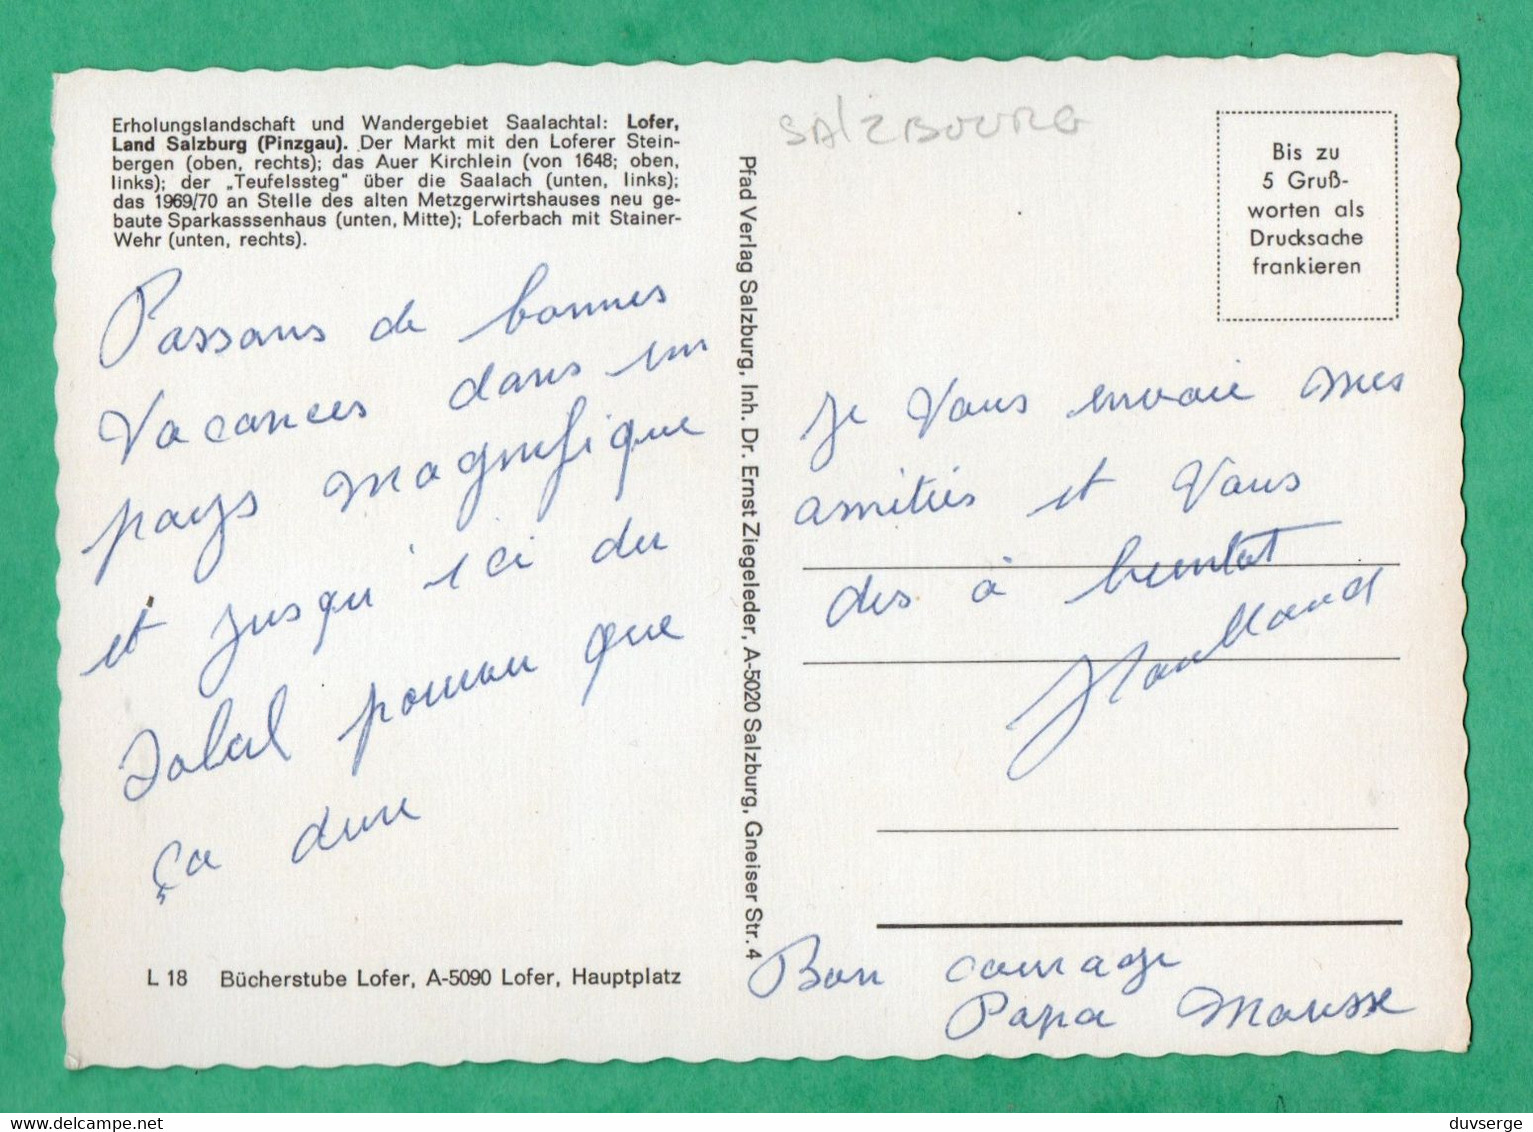 Erholungslandschaft und Wandergebiet Saalachtal: Lofer,
Land Salzburg (Pinzgau). Der Markt mit den Loferer Stein-
bergen (oben, rechts); das Auer Kirchlein (von 1648; oben,
links); der „Teufelssteg" über die Saalach (unten, links);
das 1969/70 an Stelle des alten Metzgerwirtshauses neu ge-
baute Sparkasssenhaus (unten, Mitte); Loferbach mit Stainer-
Wehr (unten, rechts).
Passons de bonnes
Vacances dans un
pays magnifique
et jusqu'ici du
Soleil pourvu que
ça dure
L 18 Bücherstube Lofer, A-5090 Lofer, Hauptplatz
Pfad Verlag Salzburg, Inh. Dr. Ernst Ziegeleder, A-5020 Salzburg, Gneiser Str. 4
SALZBOURG
Bis zu
5 Gruß-
worten als
Drucksache
frankieren
Je Vous envoie mes
amitiés et Vous
dis à bientot
Bon courage
Papa Mousse
duvserge